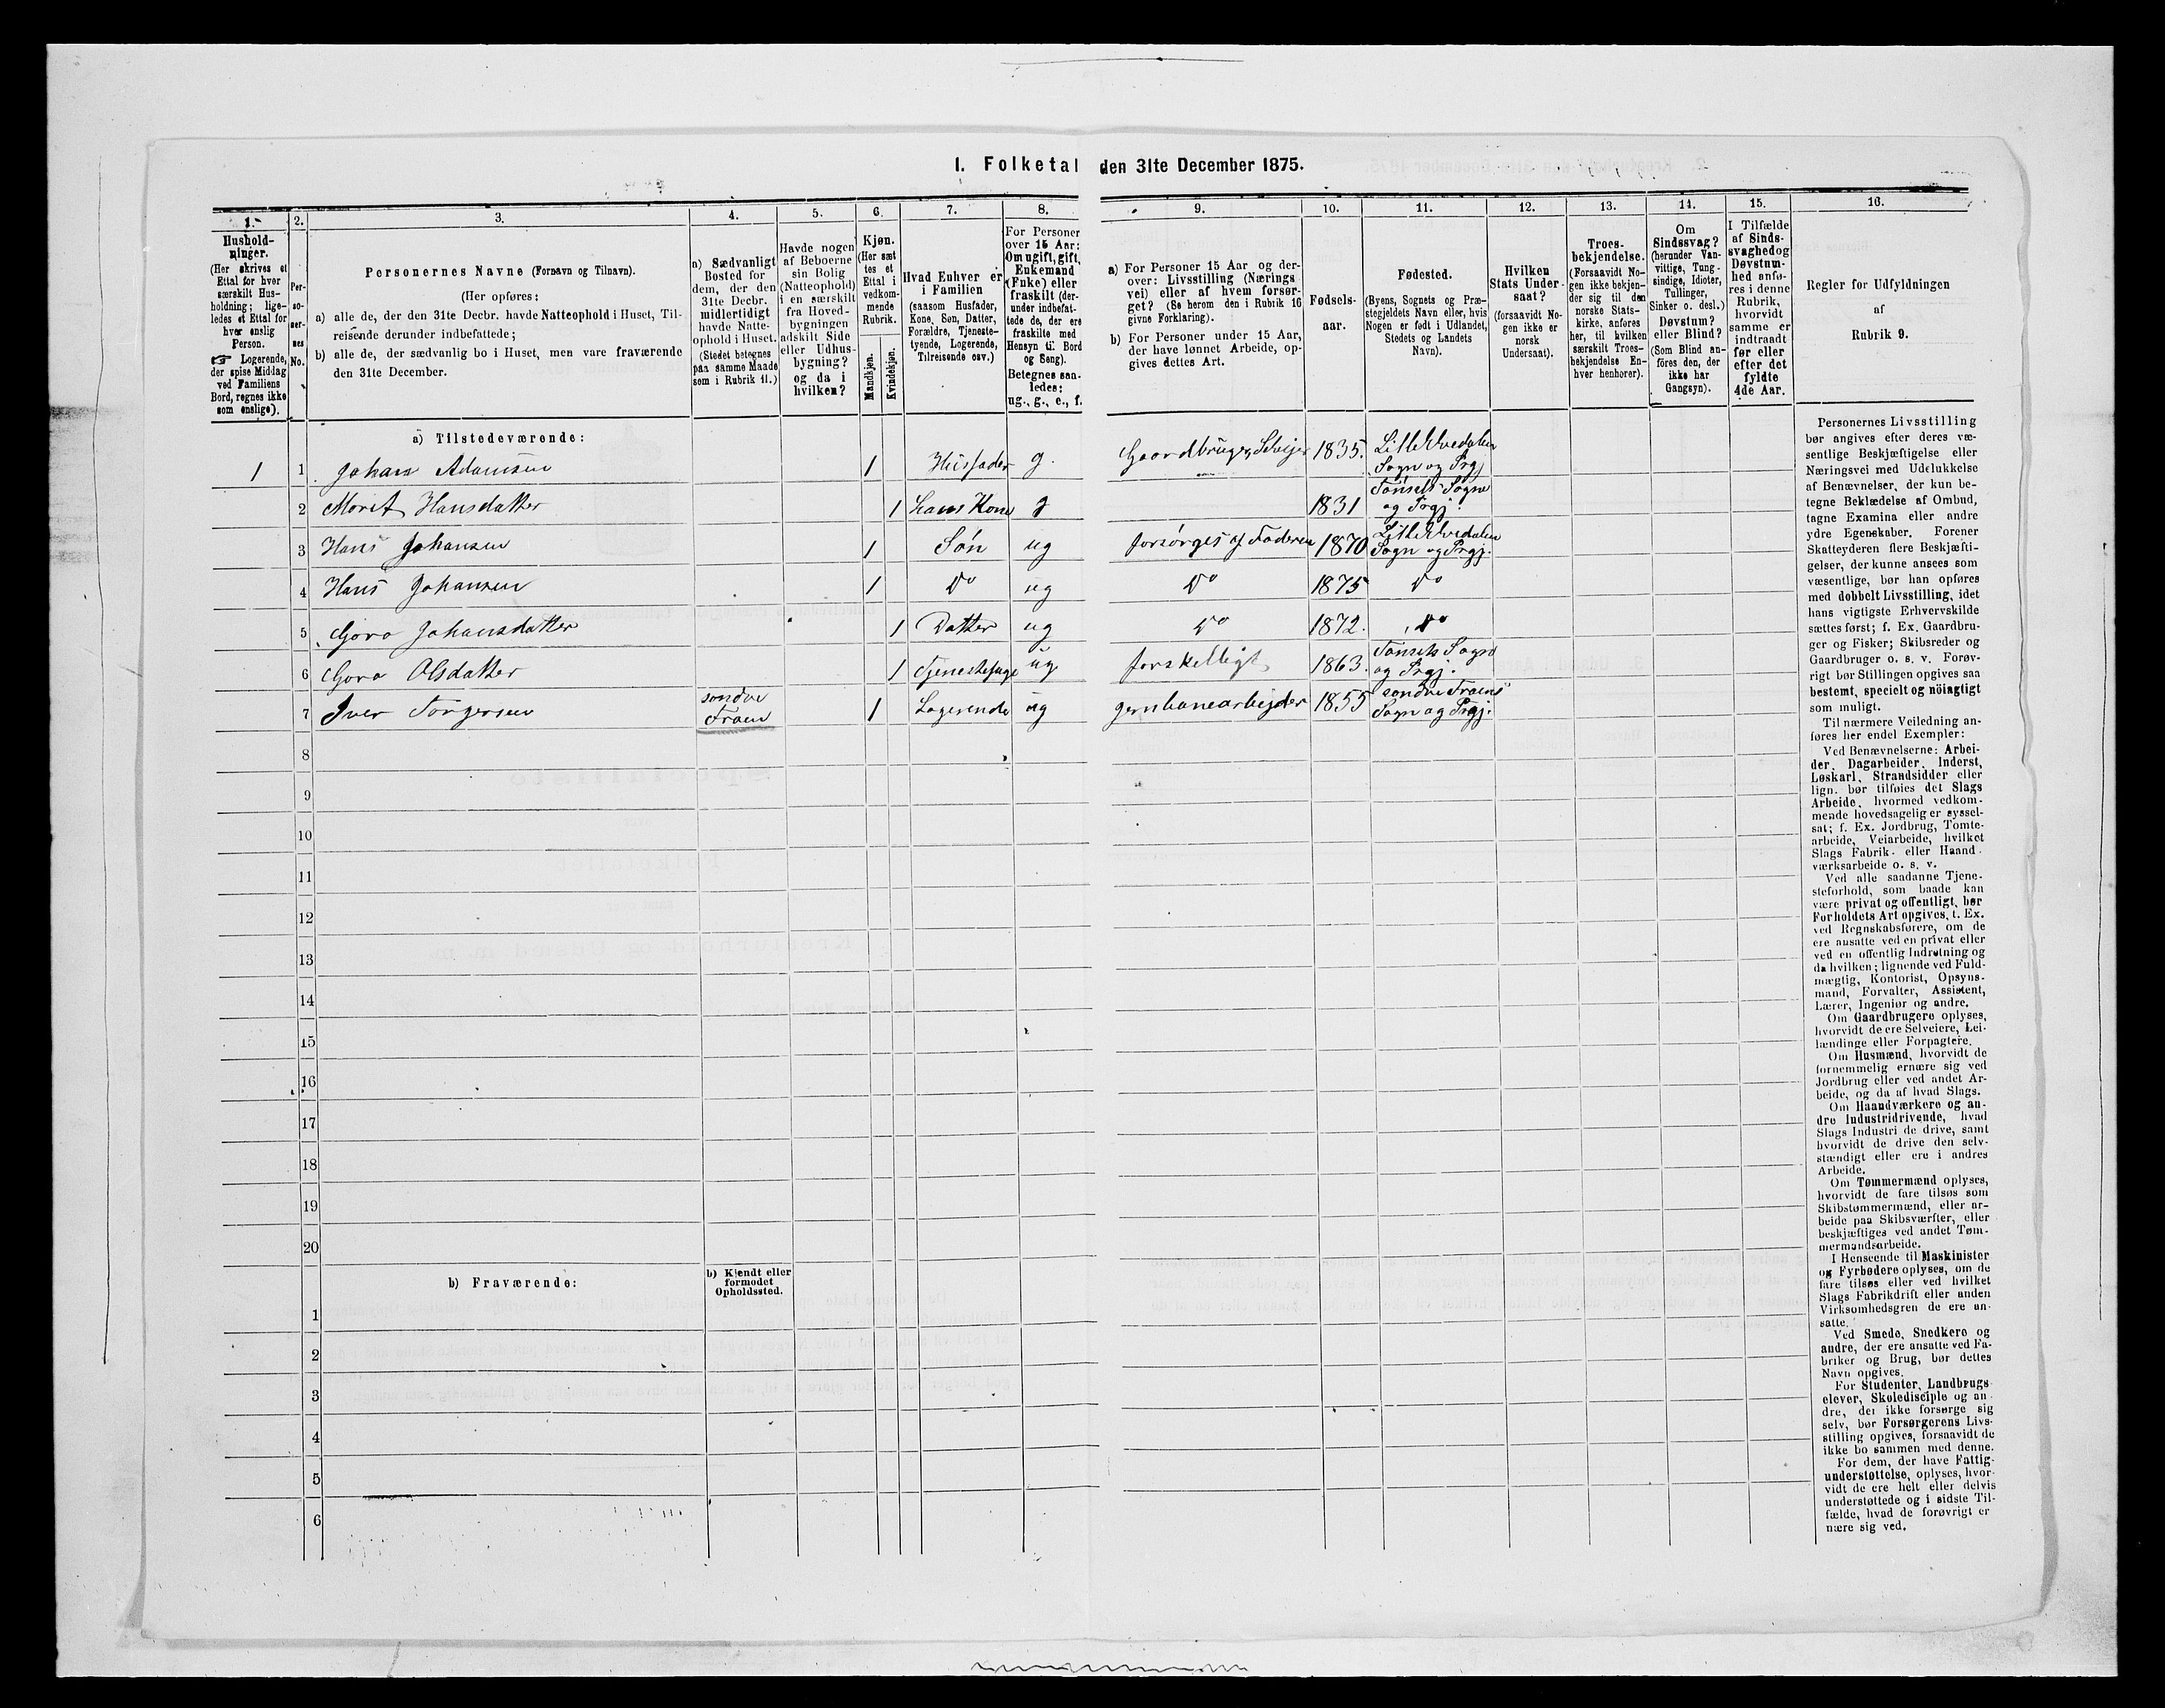 I. Folketal den 31te December 1875.
1.
Hushold-
ninger.
(Her skrives et
Ettal for hver
særskilt Hus-
holdning; lige-
ledes et Ettal for
hver enslig
Person.
☞ Logerende,
der spise Middag
ved Familiens
Bord, regnes ikke
som enslige).
2.
Per-
so-
ner-
nes
No.
3.
Personernes Navne (Fornavn og Tilnavn).
(Her opføres:
a) alle de, der den 31te Decbr. havde Natteophold i Huset, Til-
reisende derunder indbefattede;
b) alle de, der sædvanlig bo i Huset, men vare fraværende
den 31te December.
4.
a) Sædvanligt
Bosted for
dem, der den
31te Decbr.
midlertidigt
havde Natte-
ophold i Huset.
(Stedet betegnes
paa samme Maade
som i Rubrik 11.)
5.
Havde nogen
af Beboerne
sin Bolig
(Natteophold)
i en særskilt
fra Hoved-
bygningen
adskilt Side
eller Udhus-
bygning?
og da i
hvilken?
6.
Kjøn.
(Her sæt
tes et
Ettal i
vedkom-
mende
Rubrik.
Mandkjøn.
Kvindekjøn.
7.
Hvad Enhver er
i Familien
(saasom Husfader,
Kone, Søn, Datter,
Forældre, Tjeneste-
tyende, Logerende,
Tilreisende osv.)
8.
For Personer
over 15 Aar:
Om ugift, gift,
Enkemand
(Enke) eller
fraskilt (der-
under indbefat-
tede de, der ere
fraskilte med
Hensyn til Bord
og Seng).
Betegnes saa-
ledes:
ug., g., e., f.
9.
a) For Personer 15 Aar og der-
over: Livsstilling (Nærings-
vei) eller af hvem forsør-
get? (Se herom den i Rubrik 16
givne Forklaring).
b) For Personer under 15 Aar,
der have lønnet Arbeide, op-
gives dettes Art.
10.
Fødsels-
aar.
11.
Fødested.
(Byens, Sognets og Præ-
stegjeldets Navn eller, hvis
Nogen er født i Udlandet,
Stedets og Landets
Navn).
12.
Hvilken
Stats Under-
saat?
(forsaavidt No-
gen ikke er
norsk
Undersaat).
13.
Troes-
bekjendelse.
(Forsaavidt No-
gen ikke bekjen-
der sig til den
norske Stats-
kirke, anføres
her, til hvilken
særskilt Troes-
bekjendelse En-
hver henhører).
14.
Om
Sindssvag?
(herunder Van-
vittige, Tung-
sindige, Idioter,
Tullinger,
Sinker o. desl.)
Døvstum?
eller Blind?
(Som Blind an-
føres den, der
ikke har
Gangsyn).
15.
I Tilfælde
af Sinds-
svaghed og
Døvstum-
hed anfø-
res i denne
Rubrik,
hvorvidt
samme er
indtraadt
før eller
efter det
fyldte
4de Aar.
16.
Regler for Udfyldningen
af
Rubrik 9.
a) Tilstedeværende:
1 1 Johan Adamsen 1 Husfader g. Gaardbruger, Selvejer 1835. Lille Elvedalen
Sogn og Prgj
2 Morit Hansdatter 1 hans Kone g 1831 Tønsets Sogn
og Prgj.
3 Hans Johansen 1 Søn ug forsørges af Faderen 1870 Lille Elvedalen
Sogn og Prgj.
4 Hans Johansen 1 Do ug Do 1875 Do
5 Goro Johansdatter 1 Datter ug Do 1872. Do
6 Goro Olsdatter 1 Tjenestepige ug forskelligt 1863. Tønsets Sogn
og Prgj.
7 Iver Torgersen søndre
Fraen 1 Logerende ug jernbanearbejder 1855 søndre Fraens
Sogn og Prgj.
8
9
10
11
12
13
14
15
16
17
18
19
20
b) Fraværende:
b) Kjendt eller
formodet
Opholdssted.
1
2
3
4
5
6
Personernes Livsstilling
bør angives efter deres væ-
sentlige Beskjæftigelse eller
Næringsvei med Udelukkelse
af Benævnelser, der kun be-
tegne Beklædelse af Ombud,
tagne Examina eller andre
ydre Egenskaber. Forener
Skatteyderen flere Beskjæfti-
gelser, der kunne ansees som
væsentlige, bør han opføres
med dobbelt Livsstilling, idet
hans vigtigste Erhvervskilde
sættes først; f. Ex. Gaardbru-
ger og Fisker; Skibsreder og
Gaardbruger o. s. v. Forøv-
rigt bør Stillingen opgives saa
bestemt, specielt og nöiagtigt
som muligt.
Til nærmere Veiledning an-
føres her endel Exempler:
Ved Benævnelserne: Arbei-
der, Dagarbeider, Inderst,
Løskarl, Strandsidder eller
lign. bør tilføies det Slags
Arbeide, hvormed vedkom-
mende hovedsagelig er syssel-
sat; f. Ex. Jordbrug, Tomte-
arbeide, Veiarbeide, hvilket
Slags Fabrik- eller Haand-
værksarbeide o. s. v.
Ved alle saadanne Tjene-
steforhold, som baade kan
være privat og offentligt, bør
Forholdets Art opgives, t. Ex.
ved Regnskabsførere, om de
ere ansatte ved en privat eller
ved en offentlig Indretning og
da hvilken; lignende ved Fuld-
mægtig, Kontorist, Opsyns-
mand, Forvalter, Assistent,
Lærer, Ingeniør og andre.
Om Gaardbrugere oplyses,
hvorvidt de ere Selveiere, Lei-
lændinge eller Forpagtere.
Om Husmænd, hvorvidt de
fornemmelig ernære sig ved
Jordbrug eller ved andet Ar-
beide, og da af hvad Slags.
Om Haandværkere og an-
dre Industridrivende, hvad
Slags Industri de drive, samt
hvorvidt de drive den selv-
stændigt eller ere i andres
Arbeide.
Om Tømmermænd oplyses,
hvorvidt de fare tilsøs som
Skibstømmermænd, eller ar-
beide paa Skibsværfter, eller
beskjæftiges ved andet Tøm-
mermandsarbeide.
I Henseende til Maskinister
og Fyrbødere oplyses, om de
fare tilsøs eller ved hvilket
Slags Fabrikdrift eller anden
Virksomhedsgren de ere an-
satte.
Ved Smede, Snedkere og
andre, der ere ansatte ved Fa-
briker og Brug, bør dettes
Navn opgives.
For Studenter, Landbrugs-
elever, Skoledisciple og an-
dre, der ikke forsørge sig
selv, bør Forsørgerens Livs-
stilling opgives, forsaavidt de
ikke bo sammen med denne.
For dem, der have Fattig-
understøttelse, oplyses, hvor-
vidt de ere helt eller delvis
understøttede og i sidste Til-
fælde, hvad de forøvrigt er
nære sig ved.